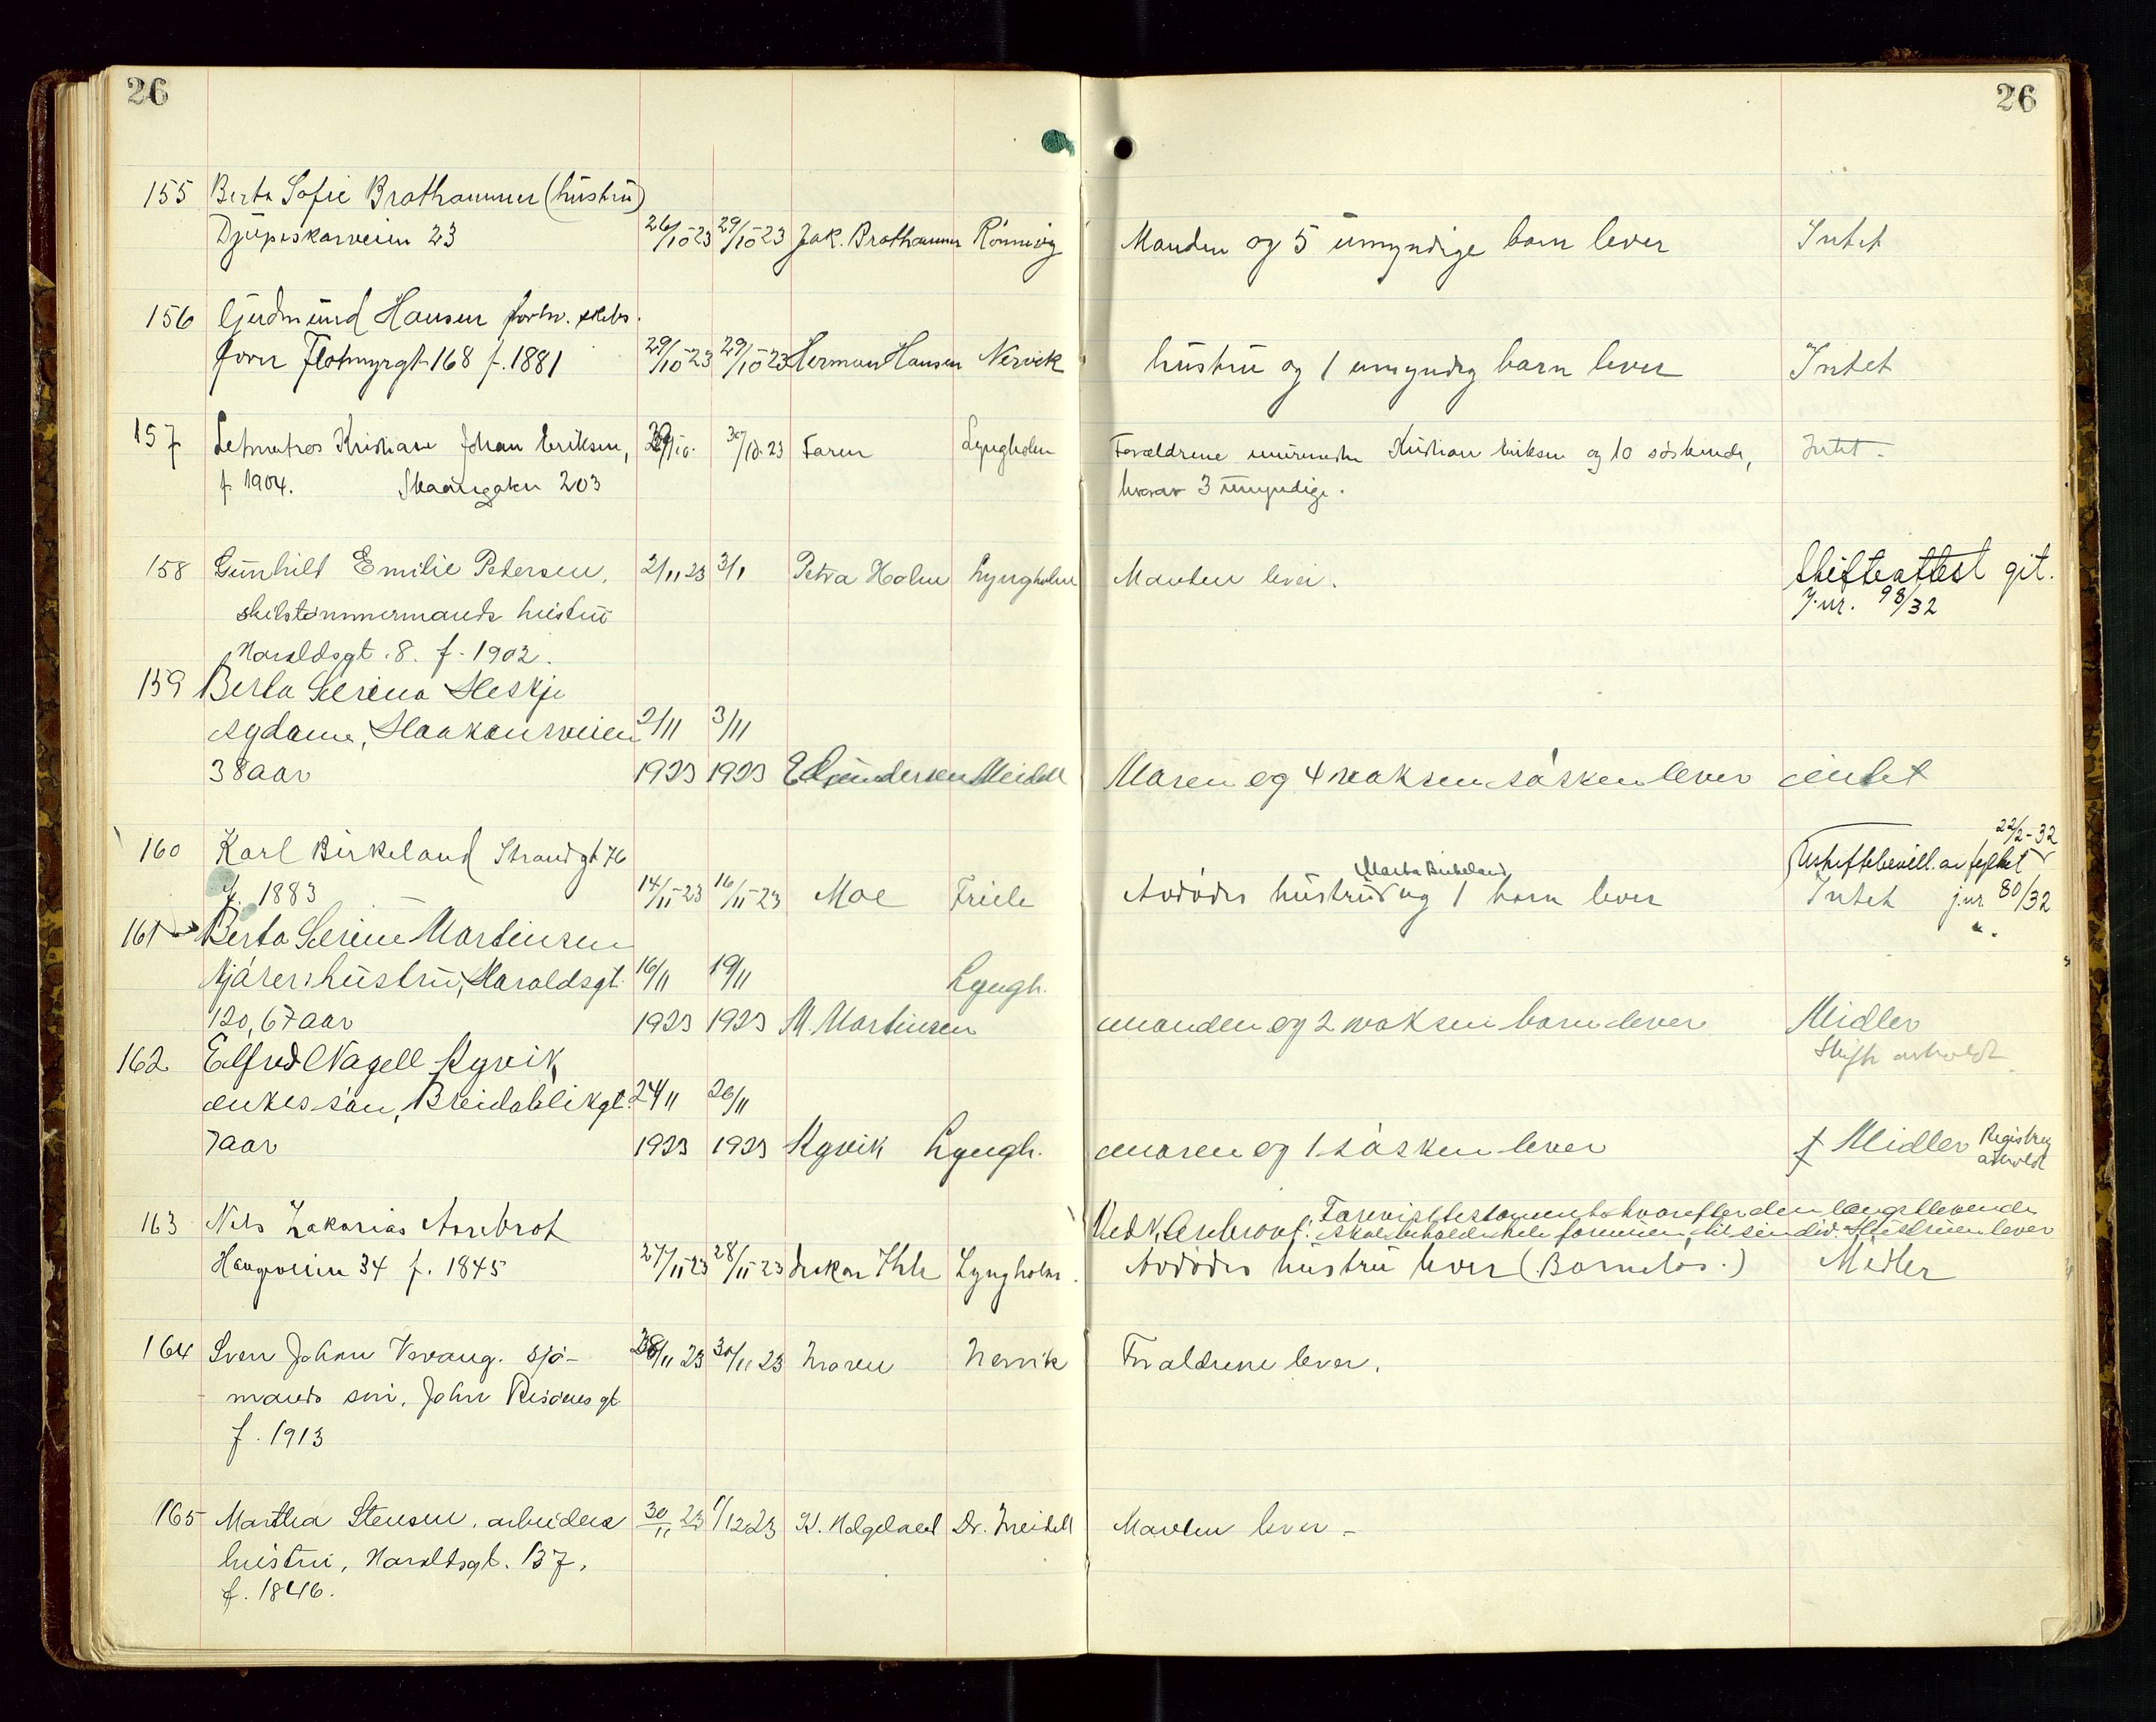 26
26
155 Berta Sofie Brathammer (hustru)
Djupaskarveien 23 26/10-23 29/10-23 Jak. Brathammer Rönnevig Manden og 5 umyndige barn lever Intet
156 Gudmund Hansen forhv. skibs.
fører Flotmyrgt 168 f. 1881 29/10-23 29/10-23 Herman Hansen Nervik hustru og 1 umyndig barn lever Intet
157 Letmatros Kristian Johan Eriksen, 29/10. 30/10.23 Faren Lyngholm Forældrene Kristian Eriksen og 10 söskende, Intet.
f. 1904. Skaaregaten 203 hvorav 3 umyndige.
158 Gunhild Emilie Petersen, 2/11 23 3/1 Petra Holm Lyngholm Manden lever. Skifteattest git.
J.nr. 98/32
skibstömmermands hustru
Haraldsgt. 8. f. 1902.
159 Berta Serina Heskje
sydame, Haakonsveien 2/11 3/11
38 aar 1923 1923 E Gundersen Meidell Moren og 4 voksen søsken lever intet
160 Karl Birkeland Strandgt 76 22/2-32
Uskiftebevill. av fylket
f. 1883 14/11-23 16/11-23 Moe Friele Avdödes hustru Marta Birkeland og 1 barn lever Intet j.nr 80/32
161 Berta Serine Martinsen
kjører hustru, Haraldsgt. 16/11 19/11 Lyngh.
120, 67 aar 1923 1923 M. Martinsen manden og 2 voksen barn lever Midler
Skifte avholdt
162 Elfred Nagell Kyvik,
enkes søn, Breidablikgt. 24/11 26/11
7 aar 1923 1923 Kyvik Lyngh. moren og 1 søsken lever † Midler Registreg avholdt
163 Nils Zakarias Aarebrot Vedk. Arebrot: Forevist testament hvorefter den længstlevende
skal beholde hele formuen til sin død. Hustruen lever
Haugveien 34 f. 1845 27/11-23 28/11-23 diakon Ihle Lyngholm. Avdödes hustru lever (Barnelös.) Midler
164 Sven Johan Vevang. sjö- 28/11 23 30/11 23 moren Nervik Forældrene lever.
mands sön, John Risöens gt
f. 1913
165 Martha Stensen, arbeiders 30/11 23 1/12 23 H. Helgeland Dr. Meidell Manden lever -
hustru, Haraldsgt. 137,
f. 1846.